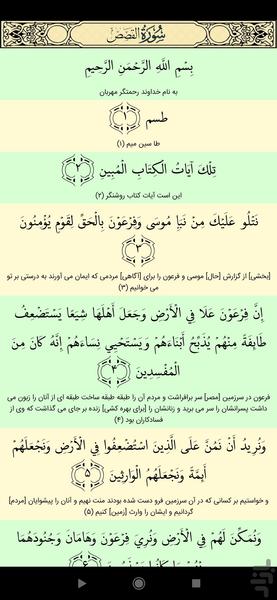 سُورَةُ القَصَصِ
بِسْمِ اللَّهِ الرَّحْمَنِ الرَّحِيمِ
به نام خداوند رحمتگر مهربان
طسم ﴿۱﴾
طا سین میم (۱)
تِلْكَ آيَاتُ الْكِتَابِ الْمُبِينِ ﴿۲﴾
این است آیات کتاب روشنگر (۲)
نَتْلُو عَلَيْكَ مِنْ نَبَإِ مُوسَى وَفِرْعَوْنَ بِالْحَقِّ لِقَوْمٍ يُؤْمِنُونَ
﴿۳﴾
[بخشی] از گزارش [حال] موسی و فرعون را برای [آگاهی] مردمی که ایمان می آورند به درستی بر تو
می خوانیم (۳)
إِنَّ فِرْعَوْنَ عَلَا فِي الْأَرْضِ وَجَعَلَ أَهْلَهَا شِيَعًا يَسْتَضْعِفُ
طَائِفَةً مِنْهُمْ يُذَبِّحُ أَبْنَاءَهُمْ وَيَسْتَحْيِي نِسَاءَهُمْ إِنَّهُ كَانَ مِنَ
الْمُفْسِدِينَ ﴿۴﴾
فرعون در سرزمین [مصر] سر برافراشت و مردم آن را طبقه طبقه ساخت طبقه ای از آنان را زبون می
داشت پسرانشان را سر می برید و زنانشان را [برای بهره کشی] زنده بر جای می گذاشت که وی از
فسادکاران بود (۴)
وَنُرِيدُ أَنْ نَمُنَّ عَلَى الَّذِينَ اسْتُضْعِفُوا فِي الْأَرْضِ وَنَجْعَلَهُمْ
أَئِمَّةً وَنَجْعَلَهُمُ الْوَارِثِينَ ﴿۵﴾
و خواستیم بر کسانی که در آن سرزمین فرو دست شده بودند منت نهیم و آنان را پیشوایان [مردم]
گردانیم و ایشان را وارث [زمین] کنیم (۵)
وَنُمَكِّنَ لَهُمْ فِي الْأَرْضِ وَنُرِيَ فِرْعَوْنَ وَهَامَانَ وَجُنُودَهُمَا